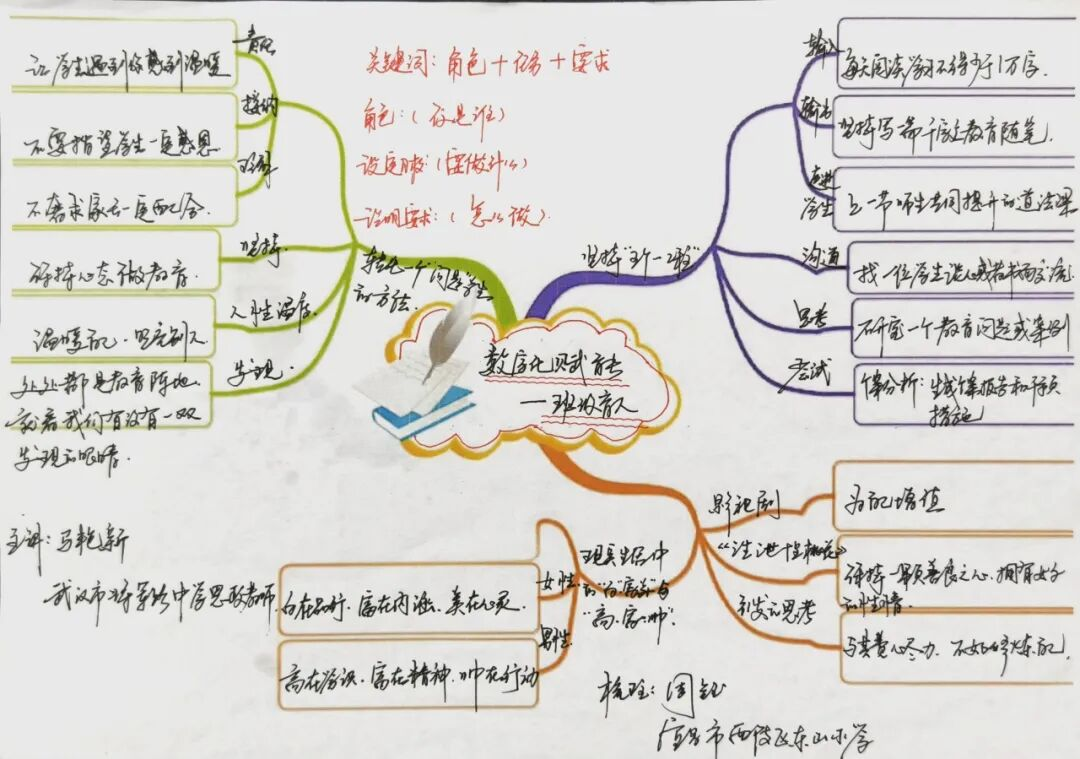 关键词：角色＋任务＋要求
角色：（你是谁）
设定目标：（要做什么）
说明要求：（怎么做）
数字化赋能
一班级育人
转化一个"问题"学生
的方法
责任
让学生遇到你感到温暖
接纳
不要指望学生一定感恩
理解
不奢求家长一定配合
坚持
保持心态做教育
人性温度
温暖自己，照亮别人
发现
处处都是教育阵地，
就看我们有没有一双
发现的眼睛。
坚持
输入
每天阅读学习不得少于1万字。
输出
坚持写一篇千字教育随笔
促进
学生
上一节师生共同提升的道法课
沟通
找一位学生谈心或者书面交流
思考
研究一个教育问题或案例
尝试
个案分析：生成个案报告和干预
措施
影视剧
为自己增值
保持一颗善良之心，拥有女子
的性情
引发的思考
与其费心尽力，不如修炼自己
现实生活中
的"白富美"与
"高富帅"
女性
白在品行、富在内涵、美在心灵
男性
高在学识、富在精神、帅在行动
主讲：马艳新
武汉市 中学思政教师
梳理：周钰
宜昌市西陵区东山小学